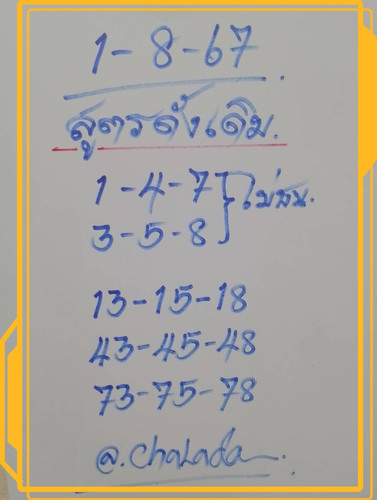 1-8-67
สูตรดั้งเดิม.
1-4-7
3-5-8 } ไม่ชน.
13-15-18
43-45-48
73-75-78
@.chalada